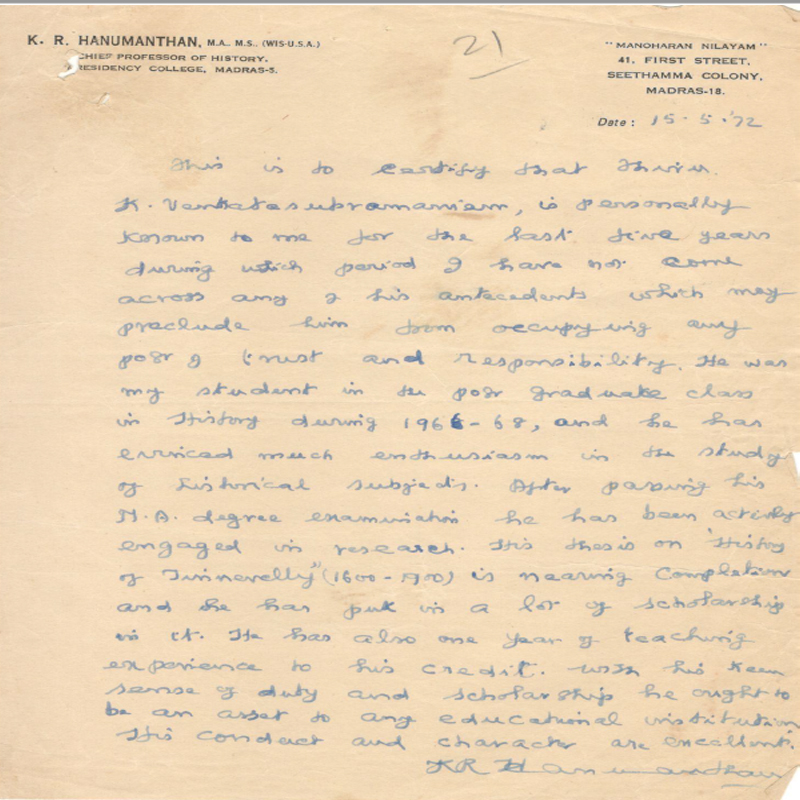 K. R. HANUMANTHAN, M.A., M.S., (WIS-U.S.A.)
CHIEF PROFESSOR OF HISTORY,
PRESIDENCY COLLEGE, MADRAS-5.
21
"MANOHARAN NILAYAM"
41, FIRST STREET,
SEETHAMMA COLONY,
MADRAS-18.
Date : 15.5.'72
This is to certify that Thiru.
K. Venkatasubramaniam, is personally
known to me for the last five years
during which period I have not come
across any of his antecedents which may
preclude him from occupying any
post of trust and responsibility. He was
my student in the post graduate class
in History during 1966-68, and he has
evinced much enthusiasm in the study
of historical subjects. After passing his
M.A. degree examination he has been actively
engaged in research. His thesis on "History
of Tinnevelly" (1600-1900) is nearing completion
and he has put in a lot of scholarship
in it. He has also one year of teaching
experience to his credit. With his keen
sense of duty and scholarship he ought to
be an asset to any educational institution.
His conduct and character are excellent.
KR Hanumanthan